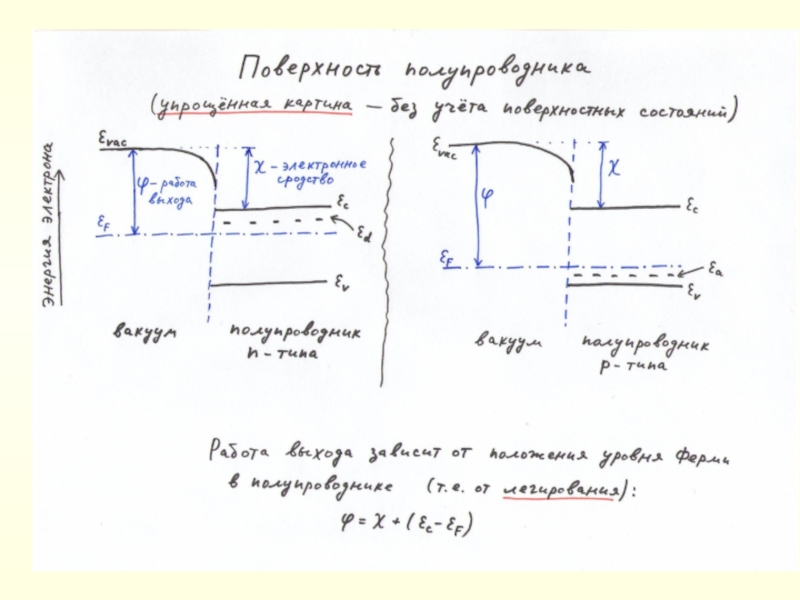 Поверхность полупроводника
(упрощённая картина — без учёта поверхностных состояний)
Энергия электрона
Ɛvac
φ – работа
выхода
χ – электронное
сродство
Ɛc
ƐF
Ɛd
Ɛv
вакуум
полупроводник
n – типа
Ɛvac
φ
χ
Ɛc
ƐF
Ɛa
Ɛv
вакуум
полупроводник
p – типа
Работа выхода зависит от положения уровня Ферми
в полупроводнике (т.е. от легирования):
φ = χ + (Ɛc – ƐF)